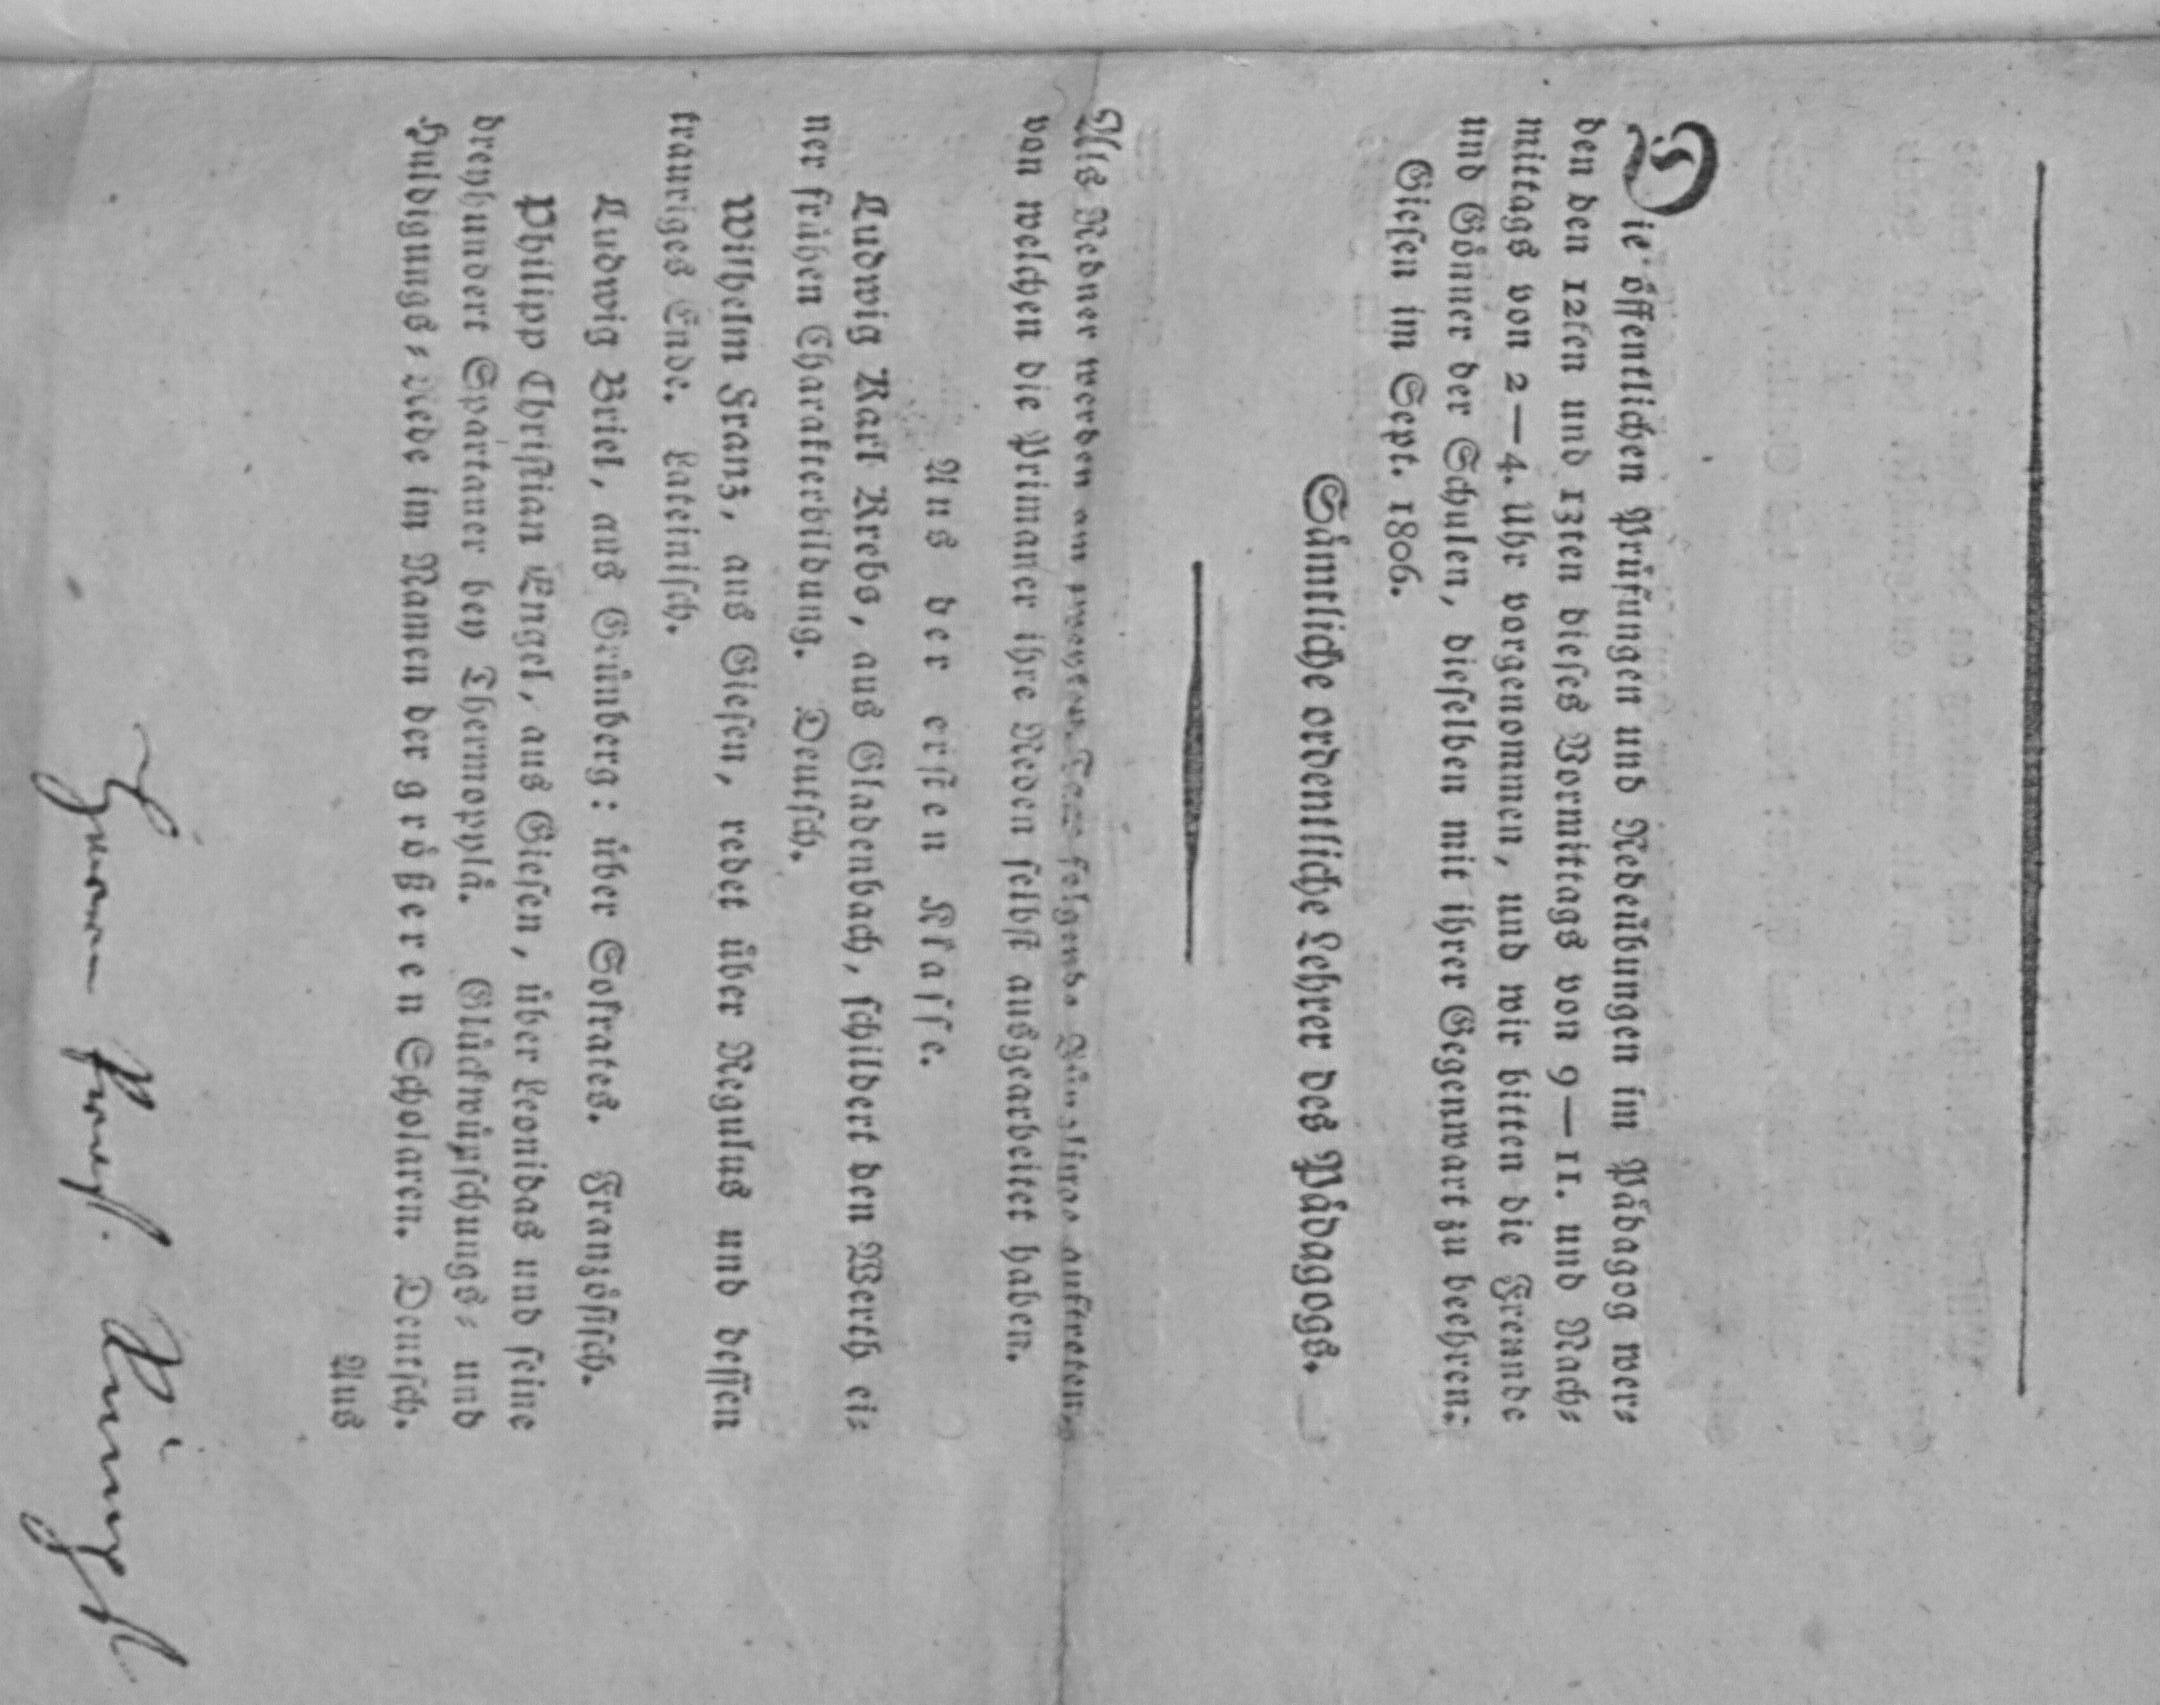 Die öffentlichen Prüfungen und Redeübungen im Pädagog wer⸗
den den 12ten und 13ten dieses Vormittags von 9—11. und Nach⸗
mittags von 2—4. Uhr vorgenommen, und wir bitten die Freunde
und Gönner der Schulen, dieselben mit ihrer Gegenwart zu beehren:
Giesen im Sept. 1806.
Sämtliche ordentliche Lehrer des Pädagogs.
Als Redner werden am zweyten Tage folgende Jünglinge auftreten,
von welchen die Primaner ihre Reden selbst ausgearbeitet haben.
Aus der ersten Klasse.
Ludwig Karl Krebs, aus Gladenbach, schildert den Werth ei⸗
ner frühen Charakterbildung. Deutsch.
Wilhelm Franz, aus Giesen, redet über Regulus und dessen
trauriges Ende. Lateinisch.
Ludwig Briel, aus Grünberg: über Sokrates. Französisch.
Philipp Christian Engel, aus Giesen, über Leonidas und seine
dreyhundert Spartaner bey Thermopylä. Glückwünschungs⸗ und
Huldigungs⸗Rede im Namen der größeren Scholaren. Deutsch.
Aus
Herrn